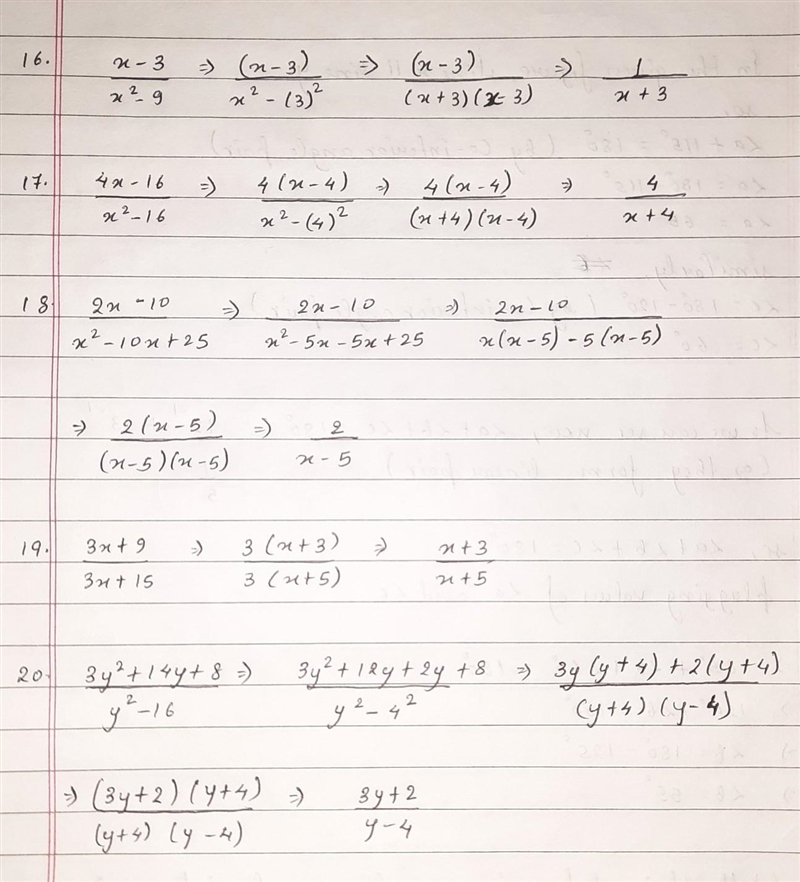 16. x-3/x²-9 ⇒ (x-3)/x²-(3)² ⇒ (x-3)/(x+3)(x-3) ⇒ 1/x+3
17. 4x-16/x²-16 ⇒ 4(x-4)/x²-(4)² ⇒ 4(x-4)/(x+4)(x-4) ⇒ 4/x+4
18. 2x-10/x²-10x+25 ⇒ 2x-10/x²-5x-5x+25 ⇒ 2x-10/x(x-5)-5(x-5)
⇒ 2(x-5)/(x-5)(x-5) ⇒ 2/x-5
19. 3x+9/3x+15 ⇒ 3(x+3)/3(x+5) ⇒ x+3/x+5
20. 3y²+14y+8/y²-16 ⇒ 3y²+12y+2y+8/y²-4² ⇒ 3y(y+4)+2(y+4)/(y+4)(y-4)
⇒ (3y+2)(y+4)/(y+4)(y-4) ⇒ 3y+2/y-4